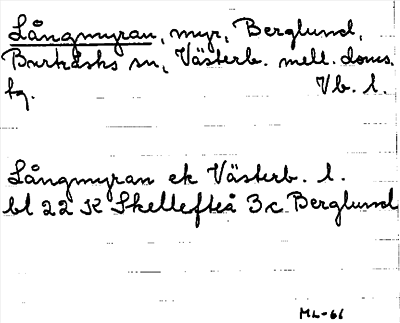 Långmyran, myr, Berglund,
Burträsks sn, Västerb. mell. doms.
fg. Vb. l.
Långmyran ek Västerb. l.
bl 22 K Skellefteå 3c Berglund
ML-66